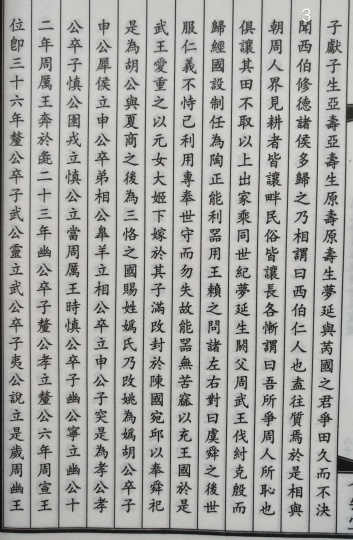 子獻子生亞壽亞壽生原壽原壽生夢延與芮國之君爭田久而不決
聞西伯修德諸侯多歸之乃相謂曰西伯仁人也盍往質焉於是相與
朝周人界見耕者皆讓畔民俗皆讓長各慚謂曰吾所爭周人所恥也
俱讓其田不取以上出家乘同世紀夢延生閼父周武王伐紂克殷而
歸經國設制任為陶正能利器用王賴之問諸左右對曰虞舜之後世
服仁義不恃己利用專奉世守而勿失故能器無苦窳以充王國於是
武王愛重之以元女大姬下嫁於其子滿改封於陳國宛邱以奉舜祀
是為胡公與夏商之後為三恪之國賜姓媯氏乃改姚為媯胡公卒子
申公犀侯立申公卒弟相公臯羊立相公卒立申公子突是為孝公孝
公卒子慎公圉戎立慎公立當周厲王時慎公卒子幽公寧立幽公十
二年周厲王奔於彘二十三年幽公卒子釐公孝立釐公六年周宣王
位卽三十六年釐公卒子武公靈立武公卒子夷公說立是歲周幽王